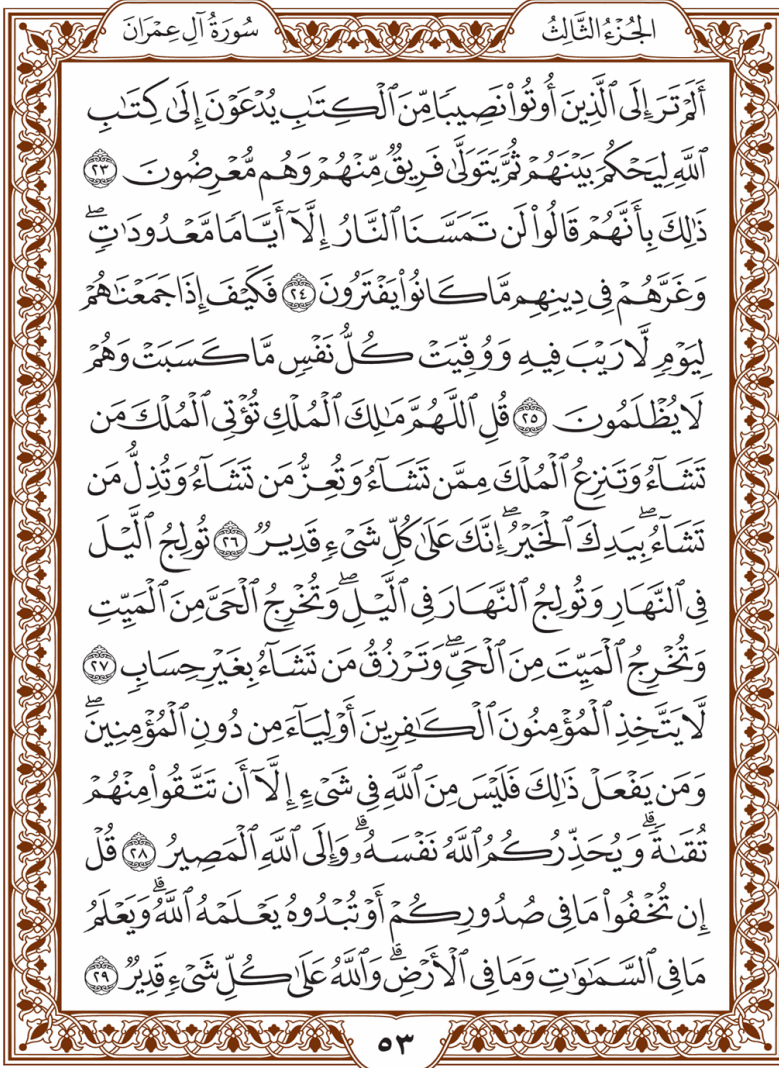 الجُزْءُ الثَّالِثُ
سُورَةُ آلِ عِمْرَانَ
أَلَمۡ تَرَ إِلَى ٱلَّذِينَ أُوتُواْ نَصِيبٗا مِّنَ ٱلۡكِتَٰبِ يُدۡعَوۡنَ إِلَىٰ كِتَٰبِ
ٱللَّهِ لِيَحۡكُمَ بَيۡنَهُمۡ ثُمَّ يَتَوَلَّىٰ فَرِيقٞ مِّنۡهُمۡ وَهُم مُّعۡرِضُونَ ٢٣
ذَٰلِكَ بِأَنَّهُمۡ قَالُواْ لَن تَمَسَّنَا ٱلنَّارُ إِلَّآ أَيَّامٗا مَّعۡدُودَٰتٖۖ
وَغَرَّهُمۡ فِي دِينِهِم مَّا كَانُواْ يَفۡتَرُونَ ٢٤ فَكَيۡفَ إِذَا جَمَعۡنَٰهُمۡ
لِيَوۡمٖ لَّا رَيۡبَ فِيهِ وَوُفِّيَتۡ كُلُّ نَفۡسٖ مَّا كَسَبَتۡ وَهُمۡ
لَا يُظۡلَمُونَ ٢٥ قُلِ ٱللَّهُمَّ مَٰلِكَ ٱلۡمُلۡكِ تُؤۡتِي ٱلۡمُلۡكَ مَن
تَشَآءُ وَتَنزِعُ ٱلۡمُلۡكَ مِمَّن تَشَآءُ وَتُعِزُّ مَن تَشَآءُ وَتُذِلُّ مَن
تَشَآءُۖ بِيَدِكَ ٱلۡخَيۡرُۖ إِنَّكَ عَلَىٰ كُلِّ شَيۡءٖ قَدِيرٞ ٢٦ تُولِجُ ٱلَّيۡلَ
فِي ٱلنَّهَارِ وَتُولِجُ ٱلنَّهَارَ فِي ٱلَّيۡلِۖ وَتُخۡرِجُ ٱلۡحَيَّ مِنَ ٱلۡمَيِّتِ
وَتُخۡرِجُ ٱلۡمَيِّتَ مِنَ ٱلۡحَيِّۖ وَتَرۡزُقُ مَن تَشَآءُ بِغَيۡرِ حِسَابٖ ٢٧
لَّا يَتَّخِذِ ٱلۡمُؤۡمِنُونَ ٱلۡكَٰفِرِينَ أَوۡلِيَآءَ مِن دُونِ ٱلۡمُؤۡمِنِينَۖ
وَمَن يَفۡعَلۡ ذَٰلِكَ فَلَيۡسَ مِنَ ٱللَّهِ فِي شَيۡءٍ إِلَّآ أَن تَتَّقُواْ مِنۡهُمۡ
تُقَىٰةٗۗ وَيُحَذِّرُكُمُ ٱللَّهُ نَفۡسَهُۥۗ وَإِلَى ٱللَّهِ ٱلۡمَصِيرُ ٢٨ قُلۡ
إِن تُخۡفُواْ مَا فِي صُدُورِكُمۡ أَوۡ تُبۡدُوهُ يَعۡلَمۡهُ ٱللَّهُۗ وَيَعۡلَمُ
مَا فِي ٱلسَّمَٰوَٰتِ وَمَا فِي ٱلۡأَرۡضِۗ وَٱللَّهُ عَلَىٰ كُلِّ شَيۡءٖ قَدِيرٞ ٢٩
٥٣